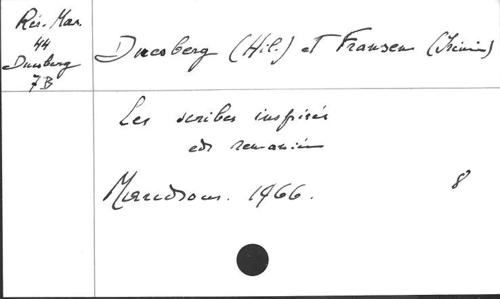 Rés. Mar.
44
Duesberg
7B
Duesberg (Hil.) et Fransen (Irénée)
Les scribes inspirés
edt remaniée
Maredsous. 1966.
8